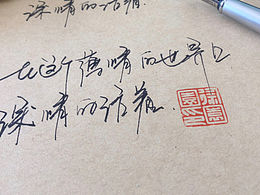 深情的活着.
在这个薄情的世界上
深情的活着.